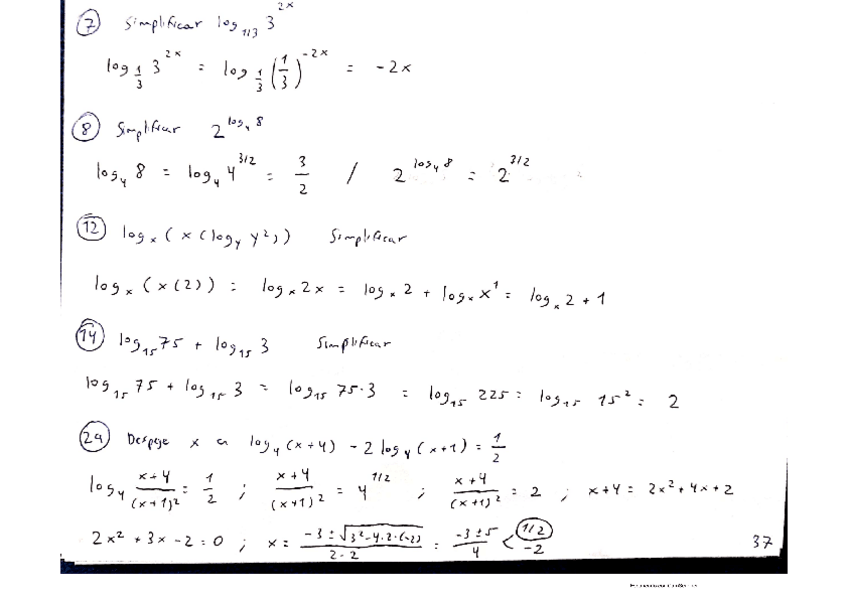 7 Simplificar log_{1/3} 3^{2x}
log_{1/3} 3^{2x} = log_{1/3} (1/3)^{-2x} = -2x
8 Simplificar 2^{log_4 8}
log_4 8 = log_4 4^{3/2} = 3/2 / 2^{log_4 8} = 2^{3/2}
12 log_x (x (log_y y^2)) Simplificar
log_x (x(2)) = log_x 2x = log_x 2 + log_x x^1 = log_x 2 + 1
14 log_{15} 75 + log_{15} 3 Simplificar
log_{15} 75 + log_{15} 3 = log_{15} 75·3 = log_{15} 225 = log_{15} 15^2 = 2
29 Despeje x en log_4 (x+4) - 2 log_4 (x+1) = 1/2
log_4 (x+4)/(x+1)^2 = 1/2 ; (x+4)/(x+1)^2 = 4^{1/2} ; (x+4)/(x+1)^2 = 2 ; x+4 = 2x^2 + 4x + 2
2x^2 + 3x - 2 = 0 ; x = (-3 ± √(3^2 - 4·2·(-2)))/(2·2) = (-3 ± 5)/4 < 1/2 -2
37